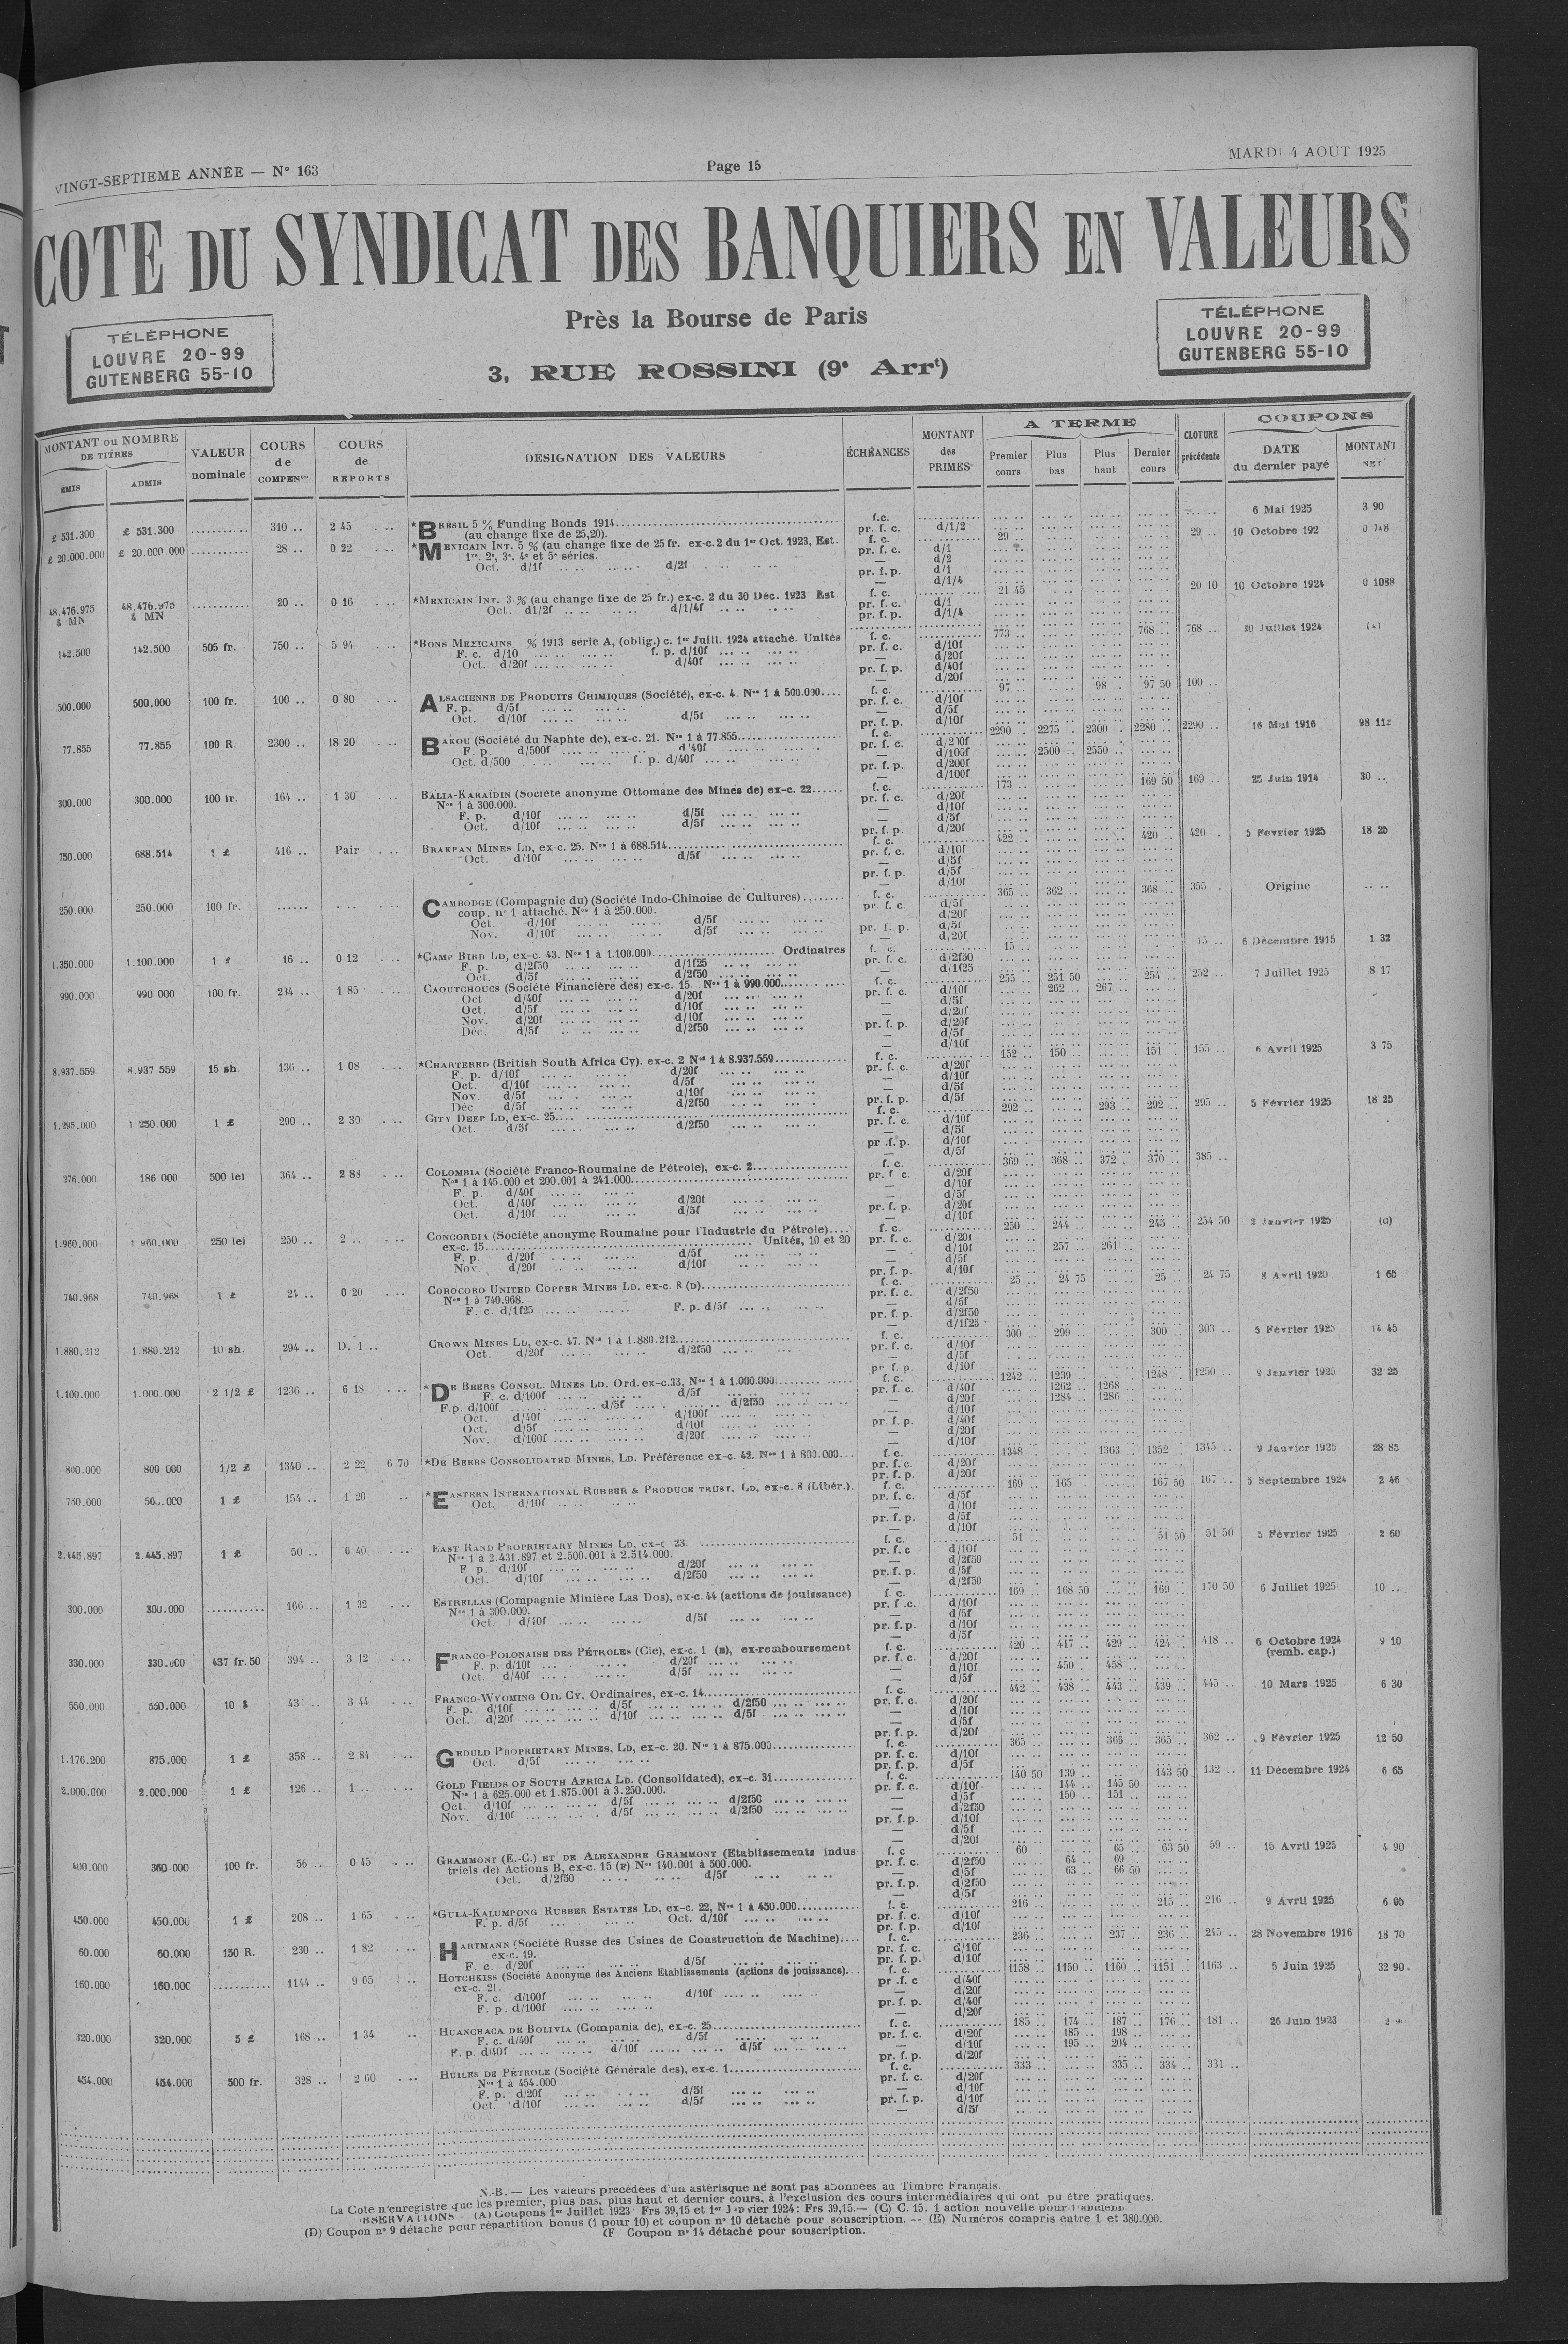 VINGT-SEPTIEME ANNÉE — N° 163
Page 15
MARDI 4 AOUT 1925
COTE DU SYNDICAT DES BANQUIERS EN VALEURS
Près la Bourse de Paris
3, RUE ROSSINI (9e Arrt)
TÉLÉPHONE
LOUVRE 20-99
GUTENBERG 55-10
TÉLÉPHONE
LOUVRE 20-99
GUTENBERG 55-10
MONTANT ou NOMBRE DE TITRES
ÉMIS ADMIS
VALEUR nominale
COURS de COMPENon
COURS de REPORTS
DÉSIGNATION DES VALEURS
ÉCHÉANCES
MONTANT des PRIMES
A TERME
Premier cours Plus bas Plus haut Dernier cours
CLOTURE précédente
COUPONS
DATE du dernier payé
MONTANT NET
£ 531.300 £ 531.300 310 .. 2 45 *BRÉSIL 5 % Funding Bonds 1914 f.c. 6 Mai 1925 3 90
(au change fixe de 25,20). pr. f. c. d/1/2
£ 20.000.000 £ 20.000.000 28 .. 0 22 *MEXICAIN INT. 5 % (au change fixe de 25 fr. ex-c. 2 du 1er Oct. 1923, Est. f. c. 29 .. 29 .. 10 Octobre 192
1re, 2e, 3e, 4e et 5e séries. pr. f. c. d/1
d/2
Oct. d/1f d/2f pr. f. p. d/1
— d/1/4
48.476.975 $ MN 48.476.975 $ MN 20 .. 0 16 *MEXICAIN INT. 3 % (au change fixe de 25 fr.) ex-c. 2 du 30 Déc. 1923 Est f. c. 21 45 20 10 10 Octobre 1924 0 1088
Oct. d1/2f d/1/4f pr. f. c. d/1
pr. f. p. d/1/4
142.500 142.500 505 fr. 750 .. 5 94 *BONS MEXICAINS % 1913 série A, (oblig.) c. 1er Juill. 1924 attaché. Unités f. c. 773 .. 768 .. 768 .. 30 Juillet 1924 (A)
F. c. d/10 f. p. d/10f pr. f. c. d/10f
Oct. d/20f d/40f — d/20f
pr. f. p. d/40f
— d/20f
500.000 500.000 100 fr. 100 .. 0 80 ALSACIENNE DE PRODUITS CHIMIQUES (Société), ex-c. 4. Nos 1 à 500.000 f. c. 97 .. 98 . 97 50 100 ..
F. p. d/5f pr. f. c. d/10f
Oct. d/10f d/5f — d/5f
pr. f. p. d/10f
77.855 77.855 100 R. 2300 .. 18 20 BAKOU (Société du Naphte de), ex-c. 21. Nos 1 à 77.855 f. c. 2290 .. 2275 .. 2300 . 2280 .. 2290 .. 16 Mai 1916
F. p. d/500f d/40f pr. f. c. d/200f
Oct. d/500 f. p. d/40f — d/100f 2500 .. 2550 ..
pr. f. p. d/200f
— d/100f
300.000 300.000 100 fr. 164 .. 1 30 BALIA-KARAÏDIN (Société anonyme Ottomane des Mines de) ex-c. 22 f. c. 173 .. 169 50 169 .. 25 Juin 1914 30 ..
Nos 1 à 300.000. pr. f. c. d/20f
F. p. d/10f d/5f — d/10f
Oct. d/10f d/5f — d/5f
pr. f. p. d/20f
750.000 688.514 1 £ 416 .. Pair BRAKPAN MINES LD, ex-c. 25. Nos 1 à 688.514 f. c. 422 .. 420 .. 420 . 5 Février 1925 18 25
Oct. d/10f d/5f pr. f. c. d/10f
— d/5f
pr. f. p. d/5f
— d/10f
250.000 250.000 100 fr. CAMBODGE (Compagnie du) (Société Indo-Chinoise de Cultures) f. c. 365 .. 362 .. 368 .. 355 . Origine
coup. n° 1 attaché. Nos 1 à 250.000. pr. f. c. d/5f
Oct. d/10f d/5f — d/20f
Nov. d/10f d/5f pr. f. p. d/5f
— d/20f
1.350.000 1.100.000 1 £ 16 .. 0 12 *CAMP BIRD LD, ex-c. 43. Nos 1 à 1.100.000 Ordinaires f. c. 15 .. 15 .. 6 Décembre 1915 1 32
F. p. d/2f50 d/1f25 pr. f. c. d/2f50
Oct. d/5f d/2f50 — d/1f25
990.000 990 000 100 fr. 234 .. 1 85 CAOUTCHOUCS (Société Financière des) ex-c. 15. Nos 1 à 990.000 f. c. 255 .. 251 50 254 .. 252 .. 7 Juillet 1925 8 17
Oct d/40f d/20f pr. f. c. d/10f 262 .. 267 ..
Oct. d/5f d/10f — d/5f
Nov. d/20f d/10f — d/20f
Déc. d/5f d/2f50 pr. f. p. d/20f
— d/5f
— d/10f
8.937.559 8.937 559 15 sh. 136 .. 1 08 *CHARTERED (British South Africa Cy). ex-c. 2 Nos 1 à 8.937.559 f. c. 152 .. 150 .. 151 . 155 .. 6 Avril 1925 3 75
F. p. d/10f d/20f pr. f. c. d/20f
Oct. d/10f d/5f — d/10f
Nov. d/5f d/10f — d/5f
Déc d/5f d/2f50 pr. f. p. d/5f
1.295.000 1 250.000 1 £ 290 .. 2 30 CITY DEEP LD, ex-c. 25 f. c. 292 .. 293 .. 292 .. 295 .. 5 Février 1925 18 25
Oct. d/5f d/2f50 pr. f. c. d/10f
— d/5f
pr .f. p. d/10f
— d/5f
276.000 186 000 500 lei 364 .. 2 88 COLOMBIA (Société Franco-Roumaine de Pétrole), ex-c. 2 f. c. 369 .. 368 .. 372 . 370 .. 385 ..
Nos 1 à 145.000 et 200.001 à 241.000 pr. f c. d/20f
F. p. d/40f — d/10f
Oct. d/40f d/20f — d/5f
Oct. d/10f d/5f pr. f. p. d/20f
— d/10f
1.960.000 1 960.000 250 lei 250 .. 2 .. CONCORDIA (Société anonyme Roumaine pour l'Industrie du Pétrole) f. c. 250 . 244 .. 245 .. 254 50 2 Janvier 1925 (C)
ex-c. 15 Unités, 10 et 20 pr. f. c. d/20f
F. p. d/20f d/5f — d/10f 257 .. 261 ..
Nov. d/20f d/10f — d/5f
pr. f. p. d/10f
740.968 740.968 1 £ 24 .. 0 20 COROCORO UNITED COPPER MINES LD. ex-c. 8 (D) f. c. 25 .. 24 75 25 .. 24 75 8 Avril 1920 1 65
Nos 1 à 740.968. pr. f. c. d/2f50
F. c. d/1f25 F. p. d/5f — d/5f
pr. f. p. d/2f50
— d/1f25
1.880.212 1 880.212 10 sh. 294 .. D. 1 .. CROWN MINES LD, ex-c. 47. Nos 1 à 1.880.212 f. c. 300 .. 299 .. 300 .. 303 .. 5 Février 1925 14 45
Oct. d/20f d/2f50 pr. f. c. d/10f
— d/5f
pr f. p. d/10f
1.100.000 1.000.000 2 1/2 £ 1236 .. 6 18 *DE BEERS CONSOL. MINES LD. Ord. ex-c.33. Nos 1 à 1.000.000 f. c. 1242 .. 1239 .. 1248 .. 1250 .. 9 Janvier 1925 32 25
F. c. d/100f d/5f pr. f. c. d/40f 1262 .. 1268 ..
F.p. d/100f d/5f d/2f50 — d/20f 1284 .. 1286 ..
Oct. d/40f d/100f — d/10f
Oct. d/5f d/10f pr. f. p. d/40f
Nov. d/100f d/20f — d/20f
— d/10f
800.000 800 000 1/2 £ 1340 .. 2 22 6 70 *DE BEERS CONSOLIDATED MINES, LD. Préférence ex-c. 42. Nos 1 à 800.000 f. c. 1348 .. 1363 .. 1352 .. 1345 .. 9 Janvier 1925 28 85
pr. f. c. d/20f
pr. f. p. d/20f
750.000 1 £ 154 .. 1 20 *EASTERN INTERNATIONAL RUBBER & PRODUCE TRUST. LD, ex-c. 8 (Libér.). f. c. 169 .. 165 .. 167 50 167 .. 5 Septembre 1924 2 46
Oct. d/10f pr. f. c. d/5f
— d/10f
pr. f. p. d/5f
— d/10f
2.445.897 2.445.897 1 £ 50 .. 0 40 EAST RAND PROPRIETARY MINES LD, ex-c 23. f. c. 51 .. 51 50 51 50 5 Février 1925 2 60
Nos 1 à 2.431.897 et 2.500.001 à 2.514.000. pr. f. c d/10f
F p. d/10f d/20f — d/2f50
Oct. d/10f d/2f50 pr. f. p. d/5f
— d/2f50
300.000 300.000 166 .. 1 32 ESTRELLAS (Compagnie Minière Las Dos), ex-c. 44 (actions de jouissance) f. c. 169 .. 168 50 169 .. 170 50 6 Juillet 1925 10 ..
Nos 1 à 300.000. pr. f .c. d/10f
Oct. d/10f d/5f — d/5f
pr. f. p. d/10f
— d/5f
330.000 330.000 437 fr. 50 394 .. 3 12 FRANCO-POLONAISE DES PÉTROLES (Cie), ex-c. 1 (E), ex-remboursement f. c. 420 .. 417 .. 429 .. 424 .. 418 .. 6 Octobre 1924 (remb. cap.) 9 10
F. p. d/10f d/20f pr. f. c. d/20f
Oct. d/40f d/5f — d/10f 450 . 458 ..
— d/5f
550.000 550.000 10 $ 3 44 FRANCO-WYOMING OIL CY. Ordinaires, ex-c. 14 f. c. 442 .. 438 .. 443 .. 439 .. 445 .. 10 Mars 1925 6 30
F. p. d/10f d/5f d/2f50 pr. f. c. d/20f
Oct. d/20f d/10f d/5f — d/10f
— d/5f
pr. f. p. d/20f
1.176.200 875.000 1 £ 358 .. 2 84 GEDULD PROPRIETARY MINES, LD, ex-c. 20. Nos 1 à 875.000 f. c. 365 .. 365 .. 365 .. 362 .. 9 Février 1925 12 50
Oct. d/5f pr. f. c. d/10f
pr. f. p. d/5f
2.000.000 2.000.000 1 £ 126 .. 1 .. GOLD FIELDS OF SOUTH AFRICA LD. (Consolidated), ex-c. 31 f. c. 140 50 139 .. 143 50 132 .. 11 Décembre 1924 6 65
Nos 1 à 625.000 et 1.875.001 à 3.250.000. pr. f. c. d/10f 144 .. 145 50
Oct. d/10f d/5f d/2f50 — d/5f 150 .. 151 ..
Nov. d/10f d/5f d/2f50 — d/2f50
pr. f. p. d/10f
— d/5f
— d/20f
400.000 360 000 100 fr. 56 .. 0 45 GRAMMONT (E.-C.) ET DE ALEXANDRE GRAMMONT (Etablissements indus f. c 60 .. 65 .. 63 50 59 .. 15 Avril 1925 4 90
triels de) Actions B, ex-c. 15 (F) Nos 140.001 à 500.000. pr. f. c. d/2f50 64 .. 69 ..
Oct. d/2f50 d/5f — d/5f 63 .. 66 50
pr. f. p. d/2f50
— d/5f
450.000 450.000 1 £ 208 .. 1 65 *GULA-KALUMPONG RUBBER ESTATES LD, ex-c. 22, Nos 1 à 450.000 f. c. 216 .. 215 .. 216 .. 9 Avril 1925 6 05
F. p. d/5f Oct. d/10f pr. f. c. d/10f
pr. f. p. d/10f
60.000 60.000 150 R. 230 .. 1 82 HARTMANN (Société Russe des Usines de Construction de Machine) f. c. 236 .. 237 .. 236 .. 245 .. 28 Novembre 1916 18 70
ex-c. 19. pr. f. c. d/10f
F. c. d/20f d/5f pr. f. p. d/10f
160.000 160.000 1144 .. 9 05 HOTCHKISS (Société Anonyme des Anciens Etablissements (actions de jouissance) f. c. 1158 .. 1150 .. 1160 .. 1151 .. 1163 .. 5 Juin 1925 32 90
ex-c. 21. pr .f. c d/40f
F. c. d/100f d/10f — d/20f
F. p. d/100f pr. f. p. d/40f
— d/20f
320.000 320.000 5 £ 168 .. 1 34 HUANCHACA DE BOLIVIA (Compania de), ex-c. 25 f. c. 185 .. 174 .. 187 .. 176 .. 181 .. 26 Juin 1923
F. c. d/40f d/5f pr. f. c. d/20f 185 .. 198 ..
F. p. d/40f d/10f d/5f — d/10f 195 .. 204 ..
pr. f. p. d/20f
454.000 454.000 500 fr. 328 .. 2 60 HUILES DE PÉTROLE (Société Générale des), ex-c. 1 f. c. 333 .. 335 .. 334 .. 331 ..
Nos 1 à 454.000 pr. f. c. d/20f
F. p. d/20f d/5f — d/10f
Oct. d/10f d/5f pr. f. p. d/10f
— d/5f
N.-B. — Les valeurs précédées d'un astérisque ne sont pas abonnées au Timbre Français.
La Cote n'enregistre que les premier, plus bas, plus haut et dernier cours, à l'exclusion des cours intermédiaires qui ont pu être pratiqués.
OBSERVATIONS - (A) Coupons 1er Juillet 1923 Frs 39,15 et 1er Janvier 1924: Frs 39,15.— (C) C. 15, 1 action nouvelle pour
(D) Coupon n° 9 détaché pour répartition bonus (1 pour 10) et coupon n° 10 détaché pour souscription. -- (E) Numéros compris entre 1 et 380.000.
(F Coupon n° 14 détaché pour souscription.